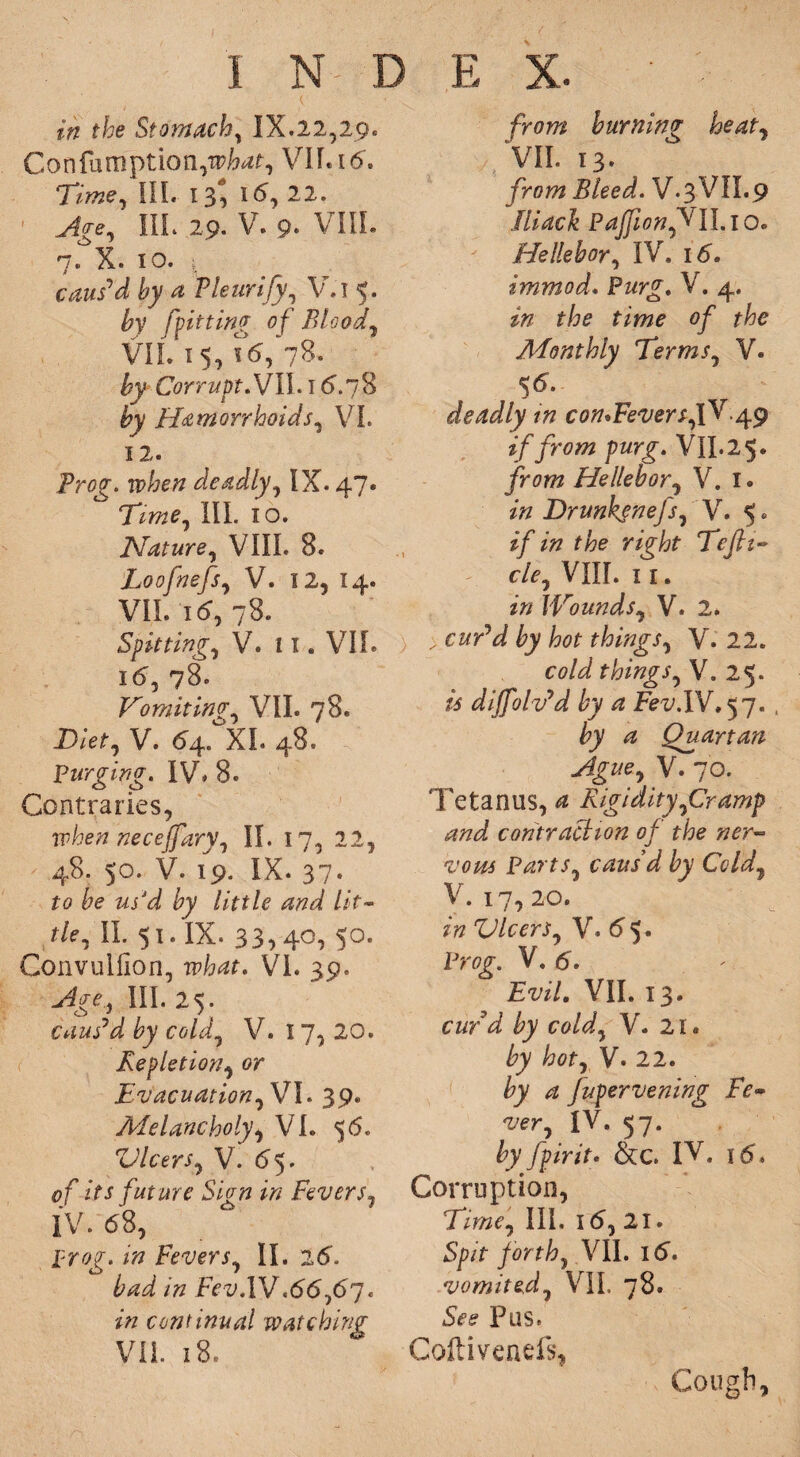 INDEX.
in the Stomach, IX.22,29.
Conſumption,what, VII.16.
Time, III. 13, 16, 22.
Age, III. 29. V. 9. VIII.
7. X. 10.
caus'd by a Pleuriſy, V.15.
by ſpitting of Blood,
VII. 15, 16, 78.
by Corrupt.VII.16.78
by Hæmorrhoids, VI.
12.
Prog. when deadly, IX. 47.
Time, III. 10.
Nature, VIII. 8.
Looſneſs, V. 12, 14.
VII. 16, 78.
Spitting, V. 11. VII.
16, 78.
Vomiting, VII. 78.
Diet, V. 64. XI. 48.
Purging. IV. 8.
Contraries,
when neceſſary, II. 17, 22,
48. 50. V. 19. IX. 37.
to be us'd by little and lit-
tle, II. 51. IX. 33, 40, 50.
Convulſion, what. VI. 39.
Age, III. 25.
caus'd by cold, V. 17, 20.
Repletion, or
Evacuation, VI. 39.
Melancholy, VI. 56.
Ulcers, V. 65.
of its future Sign in Fevers,
IV. 68,
prog. in Fevers, II. 26.
bad in Fev.IV.66,67.
in continual watching
VII. 18.
from burning heat,
VII. 13.
from Bleed. V.3VII.9
Iliack Paſſion,VII.10.
Hellebor, IV. 16.
immod. Purg. V. 4.
in the time of the
Monthly Terms, V.
56.
deadly in con.Fevers,IV.49
if from purg. VII.25.
from Hellebor, V. 1.
in Drunkeneſs, V. 5.
if in the right Teſti-
cle, VIII. 11.
in Wounds, V. 2.
cur'd by hot things, V. 22.
cold things, V. 25.
is diſſolv'd by a Fev.IV.57.
by a Quartan
Ague, V. 70.
Tetanus, a Rigidity,Cramp
and contraction of the ner-
vous Parts, caus'd by Cold,
V. 17, 20.
in Ulcers, V. 65.
Prog. V. 6.
Evil. VII. 13.
cur'd by cold, V. 21.
by hot, V. 22.
by a ſupervening Fe-
ver, IV. 57.
by ſpirit. &c. IV. 16.
Corruption,
Time, III. 16, 21.
Spit forth, VII. 16.
vomited, VII. 78.
See Pus.
Coſtiveneſs,
Cough,